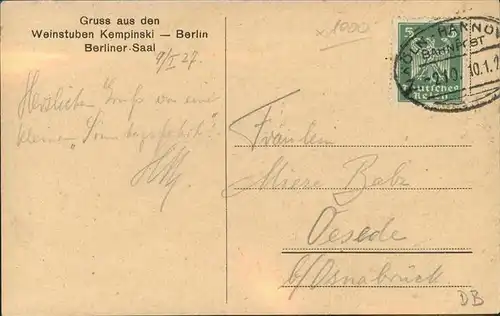 Gruss aus den
Weinstuben Kempinski — Berlin
Berliner Saal
9/I 27.
Herzlichen Gruß von einer
kleinen „Sonntagsfahrt“!
x1000
5 5
Deutsches
Reich
KÖLN-HANNOV
BAHNPOST
10.1.2
Fräulein
Miere Babe
Oesede
b/Osnabrück
DB